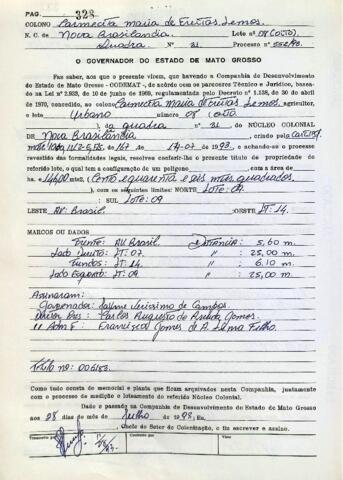 PAG. 328
COLONO Carmecita Maria de Freitas Lemos.
N. C. de Nova Brasilandia. Lote nº 08 (oito).
Quadra Nº 31. Processo nº
O GOVERNADOR DO ESTADO DE MATO GROSSO
Faz saber, aos que o presente virem, que havendo a Companhia de Desenvolvimento
do Estado de Mato Grosso - CODEMAT -, de acôrdo com os pareceres Técnico e Jurídico, basea-
do na Lei nº 2.933, de 10 de junho de 1969, regulamentada pelo Decreto nº 1.138, de 30 de abril
de 1970, concedido ao colono Carmecita Maria de Freitas Lemos, agricultor, o
lote Urbano número 08 oito
da quadra nº 31, DO NÚCLEO COLONIAL
DE Nova Brasilandia, criado pela
de 17-07-1973, e achando-se o processo
revestido das formalidades legais, resolveu conferir-lhe o presente título de propriedade do
referido lote, o qual tem a configuração de um polígono, com a área de
ha. e 146,00 mts2, (Cento e quarenta e seis mts quadrados.
), com os seguintes limites: NORTE Lote: 07.
SUL Lote: 09
LESTE AV: Brasil. OESTE LT: 14.
MARCOS OU DADOS
Frente: AV Brasil. Distancia: 5,60 m.
Lado Direito: LT: 07. " 25,00 m.
Fundos: LT: 14. " 6,10 m.
Lado Esquerdo: LT: 09 " 25,00 m.
Assinaram:
Governador: Jaime Verissimo de Campos.
Diretor Pres: Carlos Augusto de Arruda Gomes.
" Adm F: Francisco Gomes de A. Lima Filho.
Titulo nº: 006183.
Como tudo consta do memorial e planta que ficam arquivados nesta Companhia, juntamente
com o processo de medição e loteamento do referido Núcleo Colonial.
Dado e passado na Companhia de Desenvolvimento do Estado de Mato Grosso
aos 28 dias do mês de Julho de 1993. Eu,
, Chefe do Setor de Colonização, o fiz escrever e assino.
Transcrito por
Conferido por
Visto